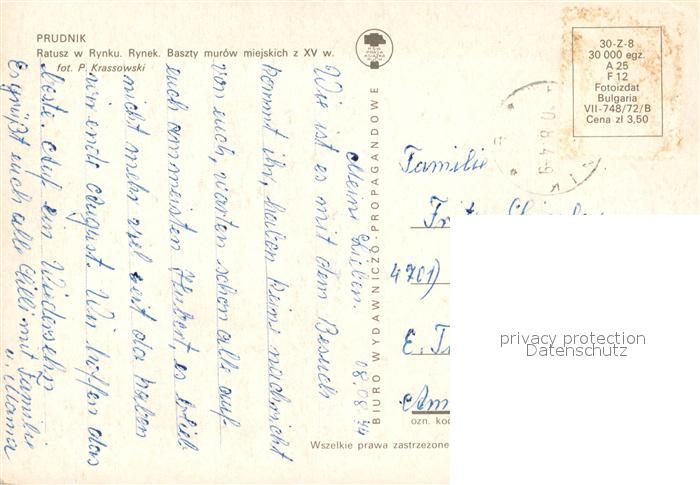 PRUDNIK
Ratusz w Rynku. Rynek. Baszty murów miejskich z XV w.
fot. P. Krassowski
30-Z-8
30 000 egz.
A 25
F 12
Fotoizdat
Bulgaria
VII-748/72/B
Cena zł 3,50
BIURO WYDAWNICZO-PROPAGANDOWE
08.08.
Meine Lieben.
Wie ist es mit dem Besuch
kommt ihr, haben keine nachricht
von euch, warten schon alle auf
euch am meisten Hubert, es bleib
nicht mehr viel zeit da haben
wir ende August. Wir hoffen das
beste. Auf ein Wiedersehn
Es grüßt euch alle Lilli mit Familie
u. Mama
Familie
4701)
E. T
Am
ozn. kod
Wszelkie prawa zastrzeżone
privacy protection
Datenschutz